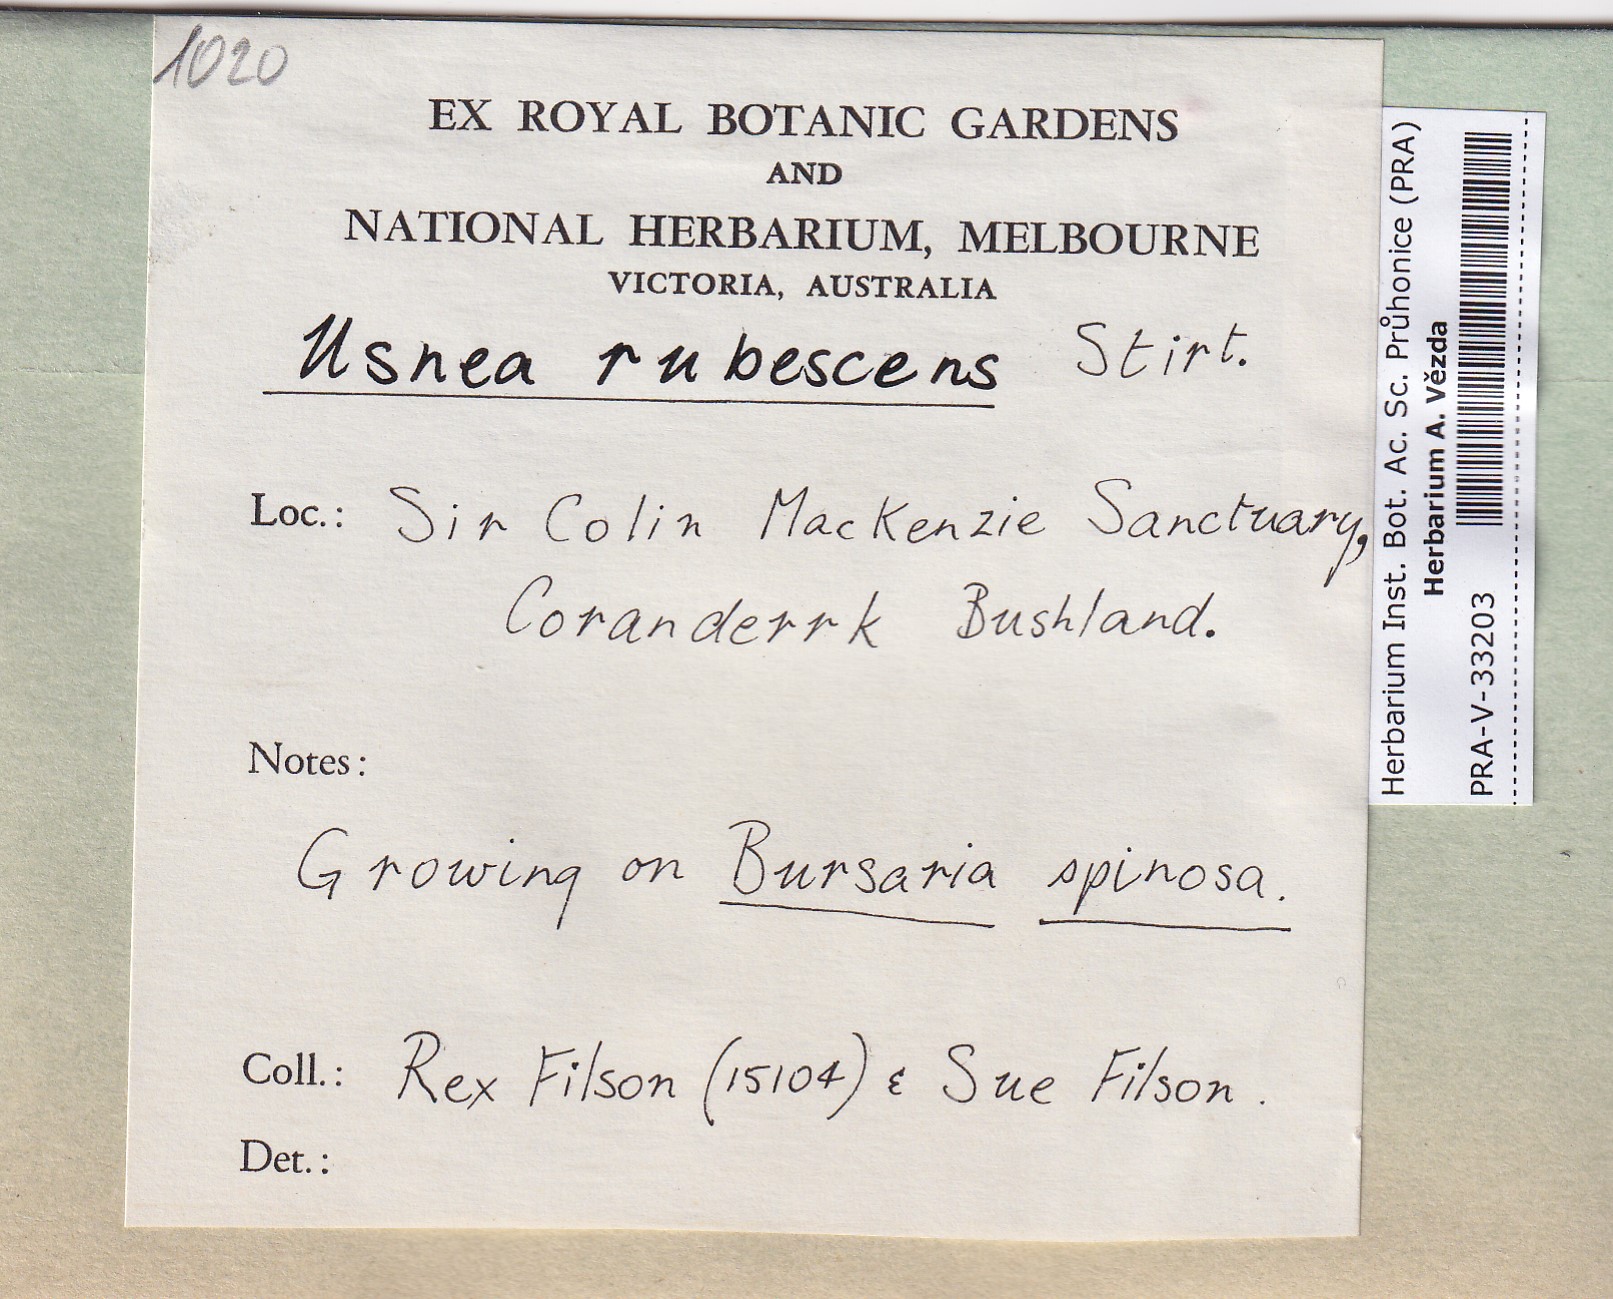 1020
EX ROYAL BOTANIC GARDENS
AND
NATIONAL HERBARIUM, MELBOURNE
VICTORIA, AUSTRALIA
Usnea rubescens Stirt.
Loc.: Sir Colin MacKenzie Sanctuary,
Coranderrk Bushland.
Notes:
Growing on Bursaria spinosa.
Coll.: Rex Filson (15104) & Sue Filson.
Det.:
Herbarium Inst. Bot. Ac. Sc. Průhonice (PRA)
Herbarium A. Vězda
PRA-V-33203